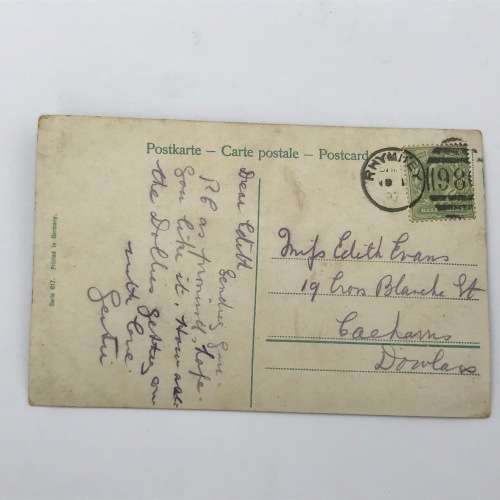 Postkarte – Carte postale – Postcard
RHYMNEY
198
Dear Edith
Sending you
P.C as promised, hope
you like it. How are
the Dollies getting on
with love
Gertie
Miss Edith Evans
19 Cross Blanche St
Caeharris
Dowlais
Serie 617. Printed in Germany.